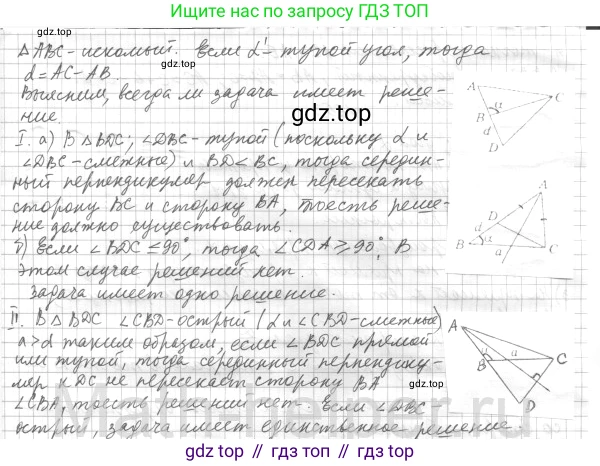 Ищите нас по запросу ГДЗ ТОП
△ABC - искомый. Если α' - тупой угол, тогда
d = AC - AB.
Выясним, всегда ли задача имеет реше-
ние.
gdz.top
I. а) В △BDC; ∠DBC - тупой (поскольку α и
∠DBC - смежные) и BD < BC, тогда середин-
ный перпендикуляр должен пересекать
сторону DC и сторону BA, тоесть реше-
ние должно существовать.
б) Если ∠BDC ≤ 90°, тогда ∠CDA ≥ 90°, В
этом случае решений нет.
Задача имеет одно решение.
II. В △BDC ∠CBD - острый (α и ∠CBD - смежные)
a > d таким образом, если ∠BDC прямой
или тупой, тогда серединный перпендику-
ляр к DC не пересекает сторону BA
∠CBA, тоесть решений нет. Если ∠ABC
острый, задача имеет единственное решение.
A
B
α
C
d
D
gdz.top
A
D
B
d
α
a
C
gdz.top
A
B
α
a
C
D
gdz.top // gdz.top // gdz.top